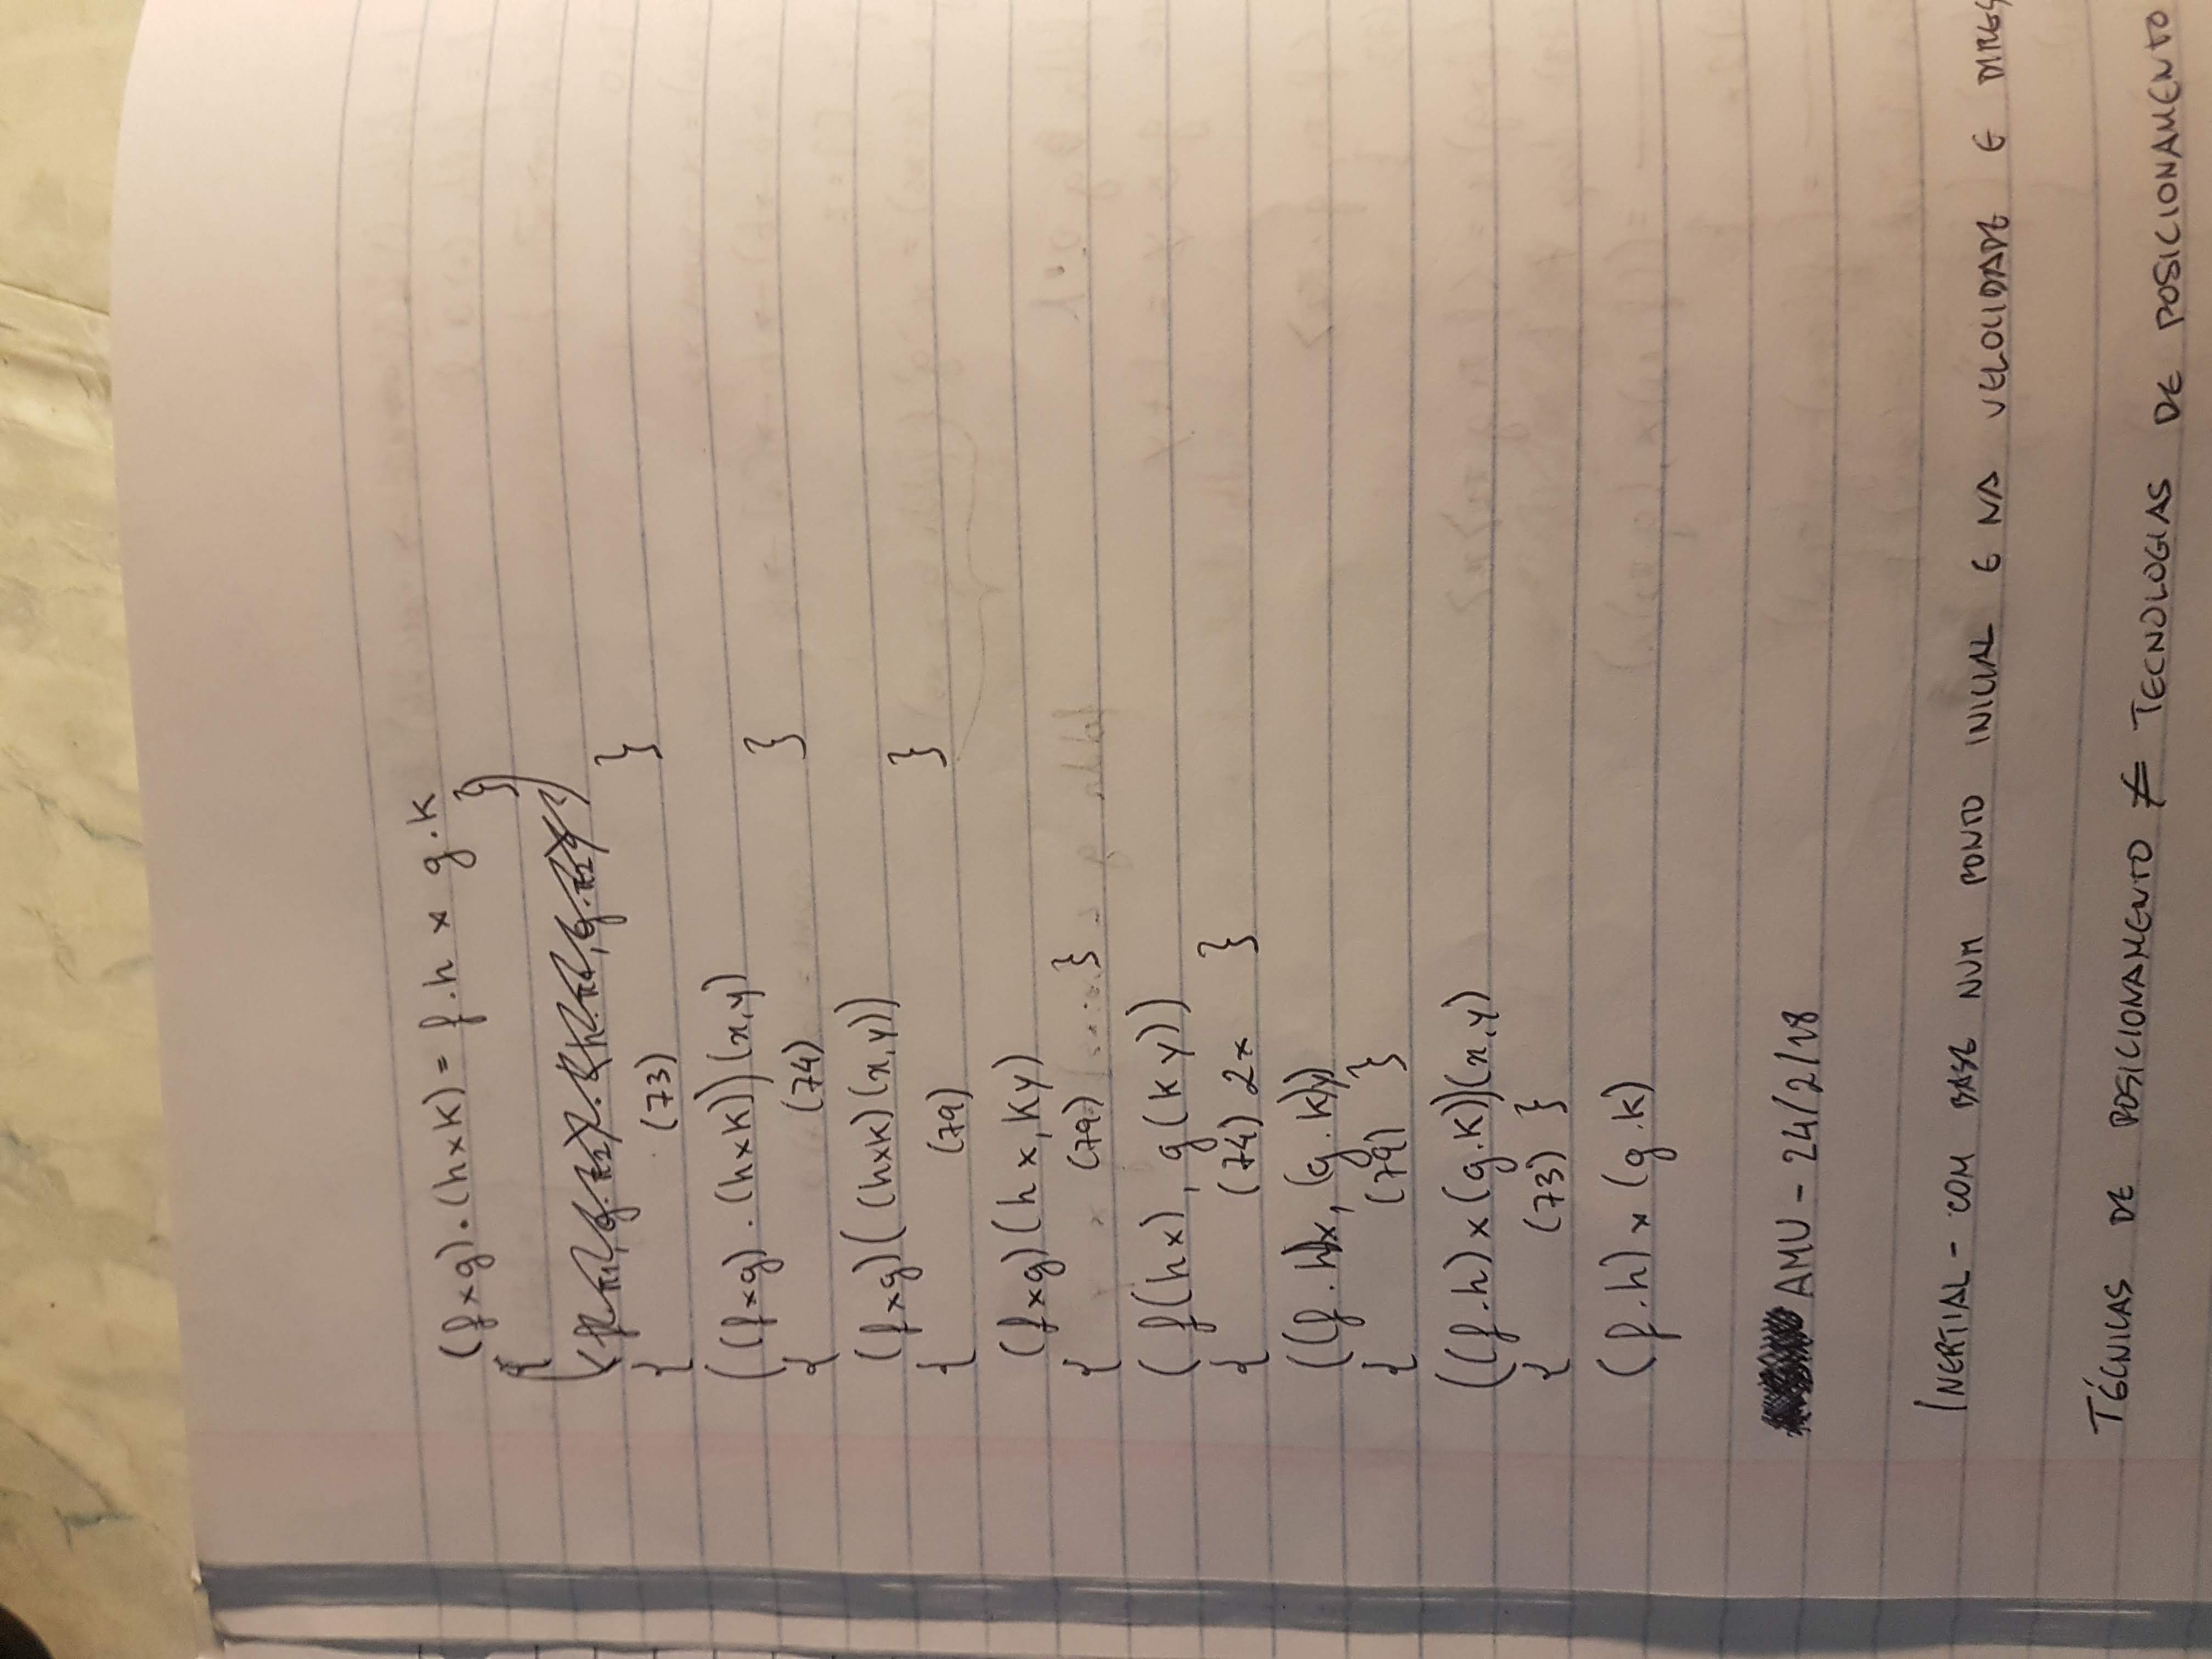 (f×g).(h×k) = f.h × g.k
{ }
{ (73) }
((f×g).(h×k))(x,y)
{ (74) }
(f×g)((h×k)(x,y))
{ (79) }
(f×g)(h x, k y)
{ (79) }
(f(h x), g(k y))
{ (74) 2x }
((f.h)x, (g.k)y)
{ (79) }
((f.h)×(g.k))(x,y)
{ (73) }
(f.h)×(g.k)
AMU - 24/2/18
INERTIAL - COM BASE NUM PONTO INICIAL E NA VELOCIDADE E
TÉCNICAS DE POSICIONAMENTO ≠ TECNOLOGIAS DE POSICIONAMENTO